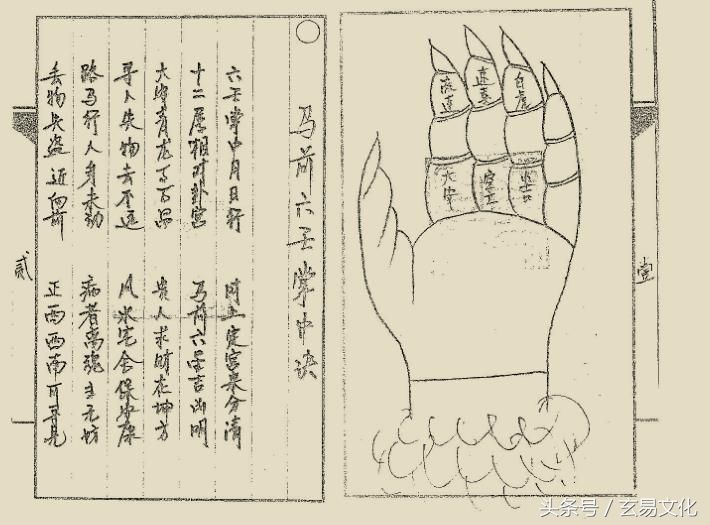 马前六壬掌中诀
六壬掌中月日行 时上定宫来分清
十二属相对卦宫 马前六壬吉凶明
大安青龙百百品 贵人求财在坤方
寻人失物去不远 风水宅舍保安康
路马行人身未动 病者离魂主无妨
丢物失盗近向前 正西西南可寻见
贰
留连
速喜
白虎
大安
空亡
壹
头条号 / 玄易文化